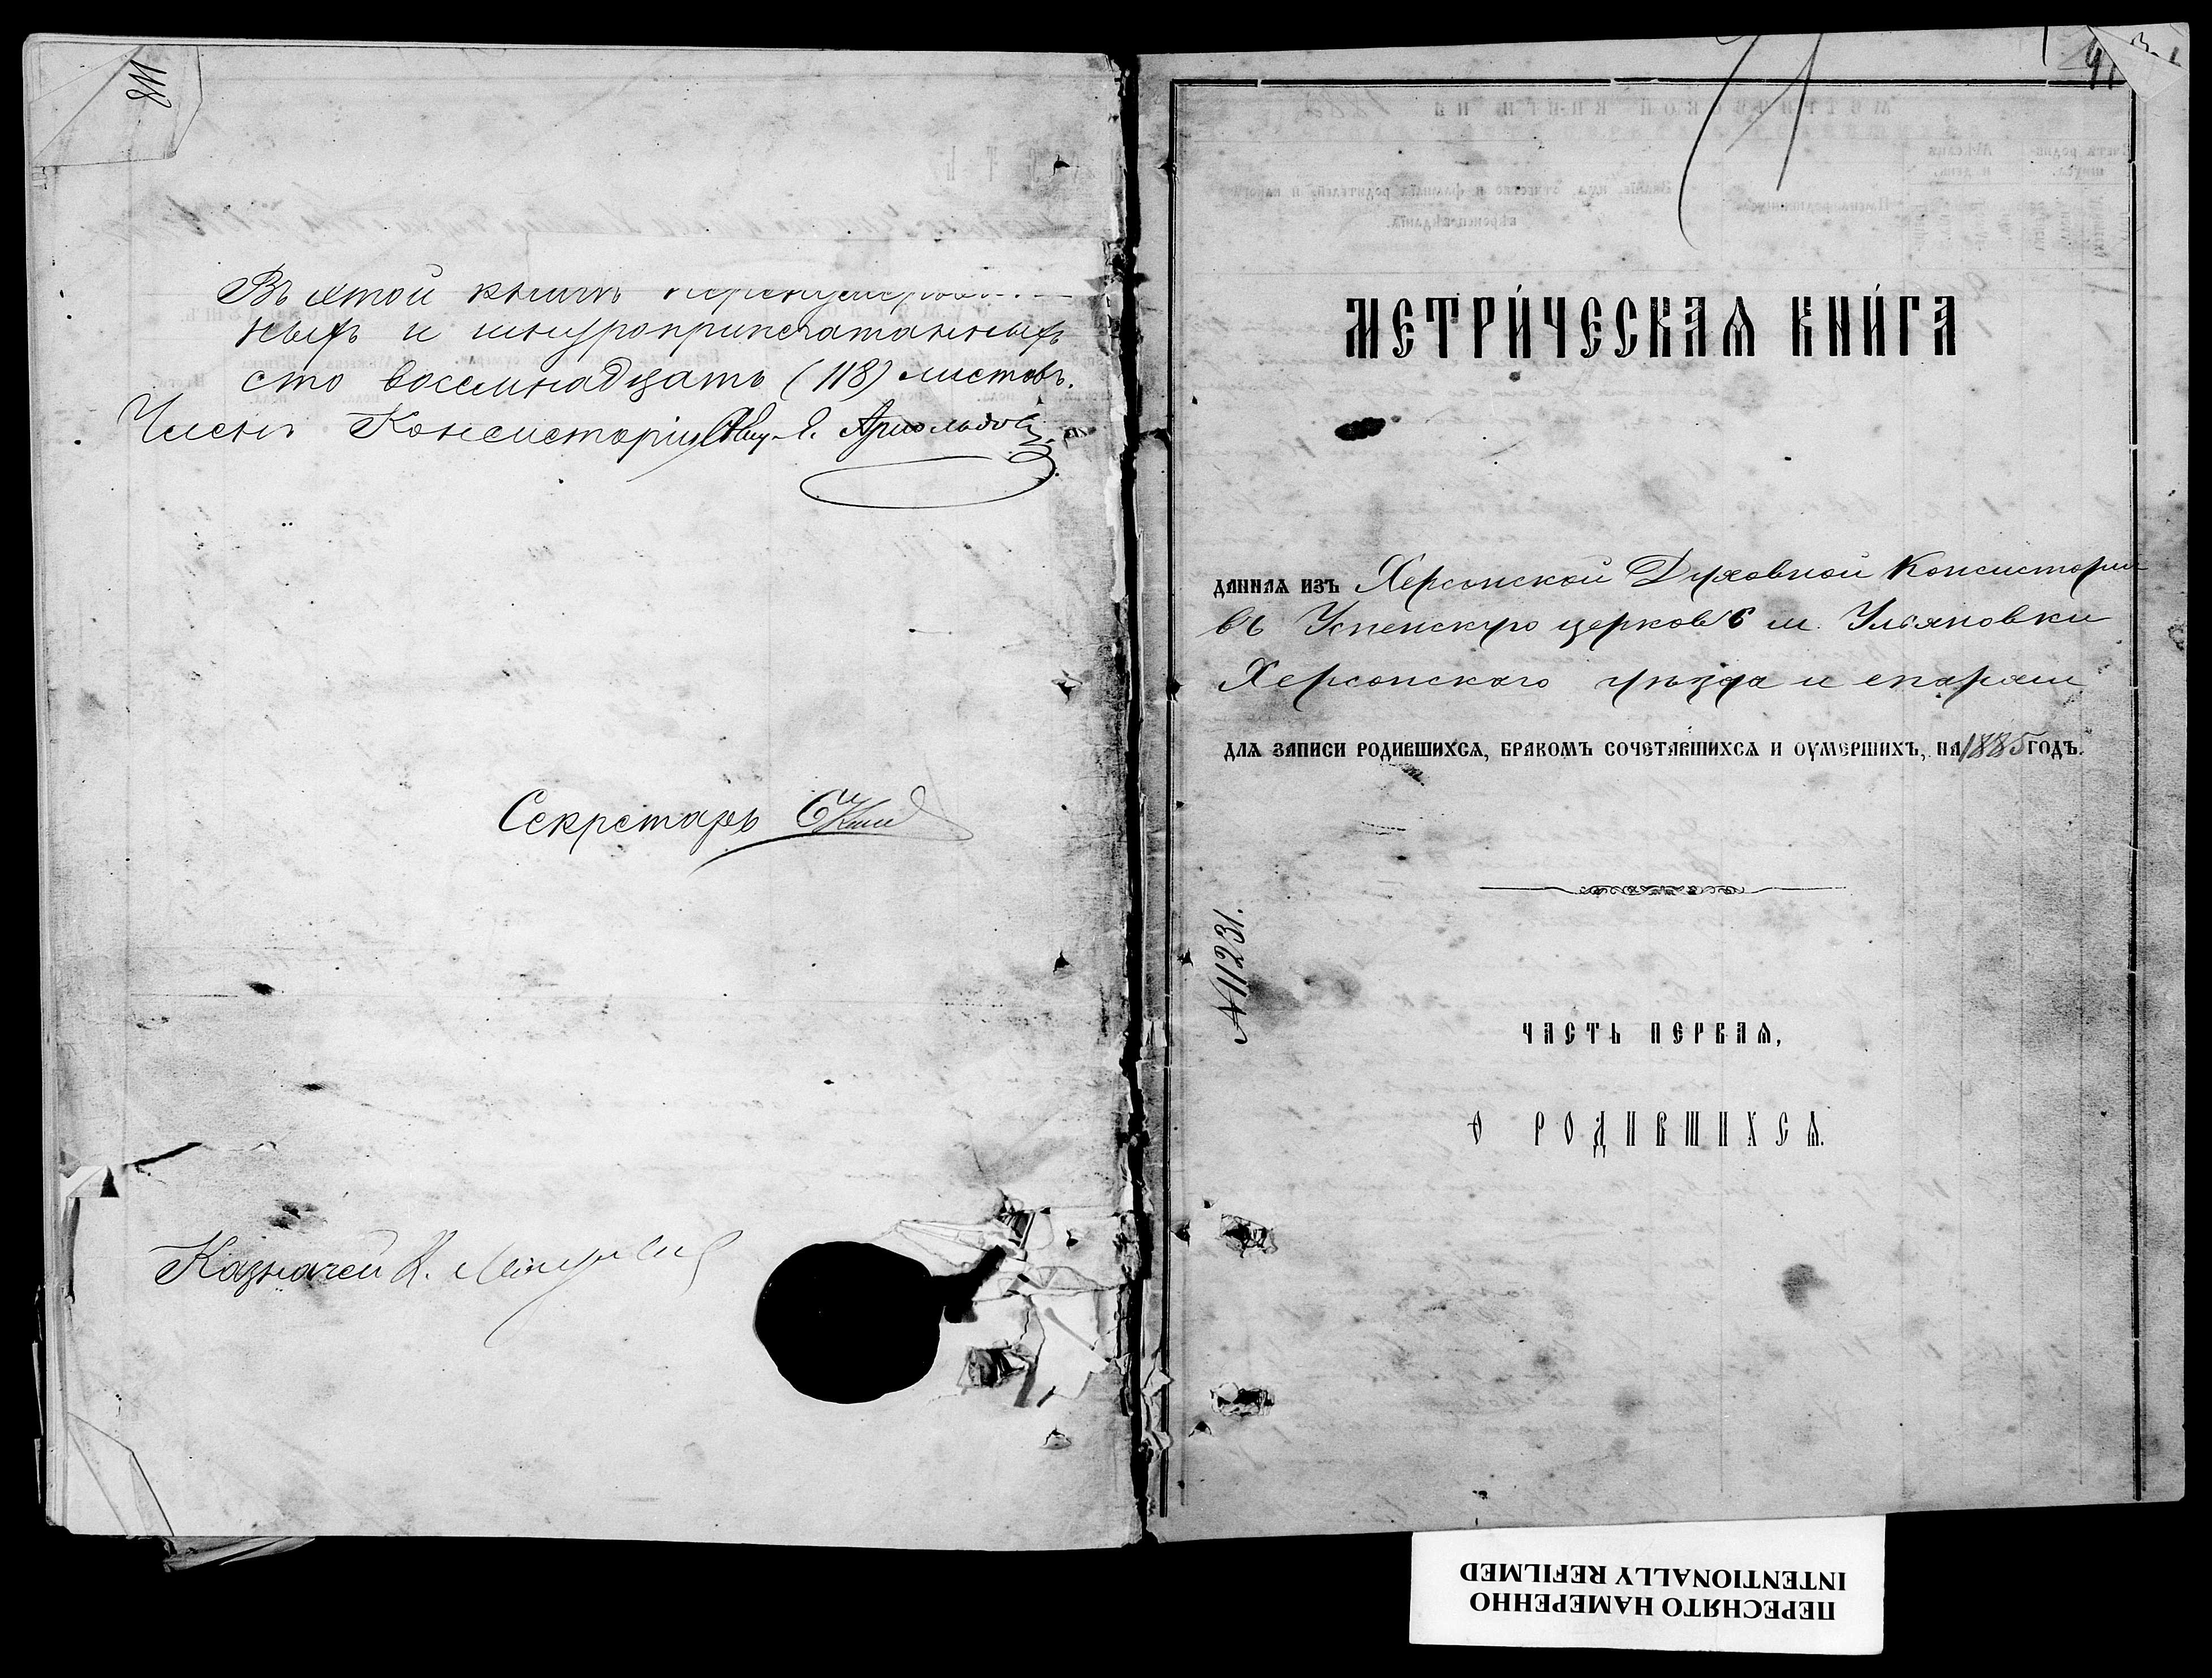 118
Въ этой книгѣ перенумерован-
ныхъ и шнуроприпечатанныхъ
сто восемнадцать (118) листовъ.
Членъ Консисторіи Свщ. Арнольдовъ
Секретарь
Казначей К.
МЕТРИ́ЧЕСКАѦ КНИ́ГА
ДАННАѦ ИЗЪ Херсонской Духовной Консисторіи
въ Успенскую церковь м. Ульяновки
Херсонского уѣзда и епархіи
ДЛѦ ЗАПИСИ РОДИВШИХСѦ, БРАКОМЪ СОЧЕТАВШИХСѦ И ОУМЕРШИХЪ, НА 1885 ГОДЪ.
№ 11231.
ЧАСТЬ ПЕРВАѦ,
О РОДИВШИХСѦ.
ПЕРЕСНЯТО НАМЕРЕННО
INTENTIONALLY REFILMED